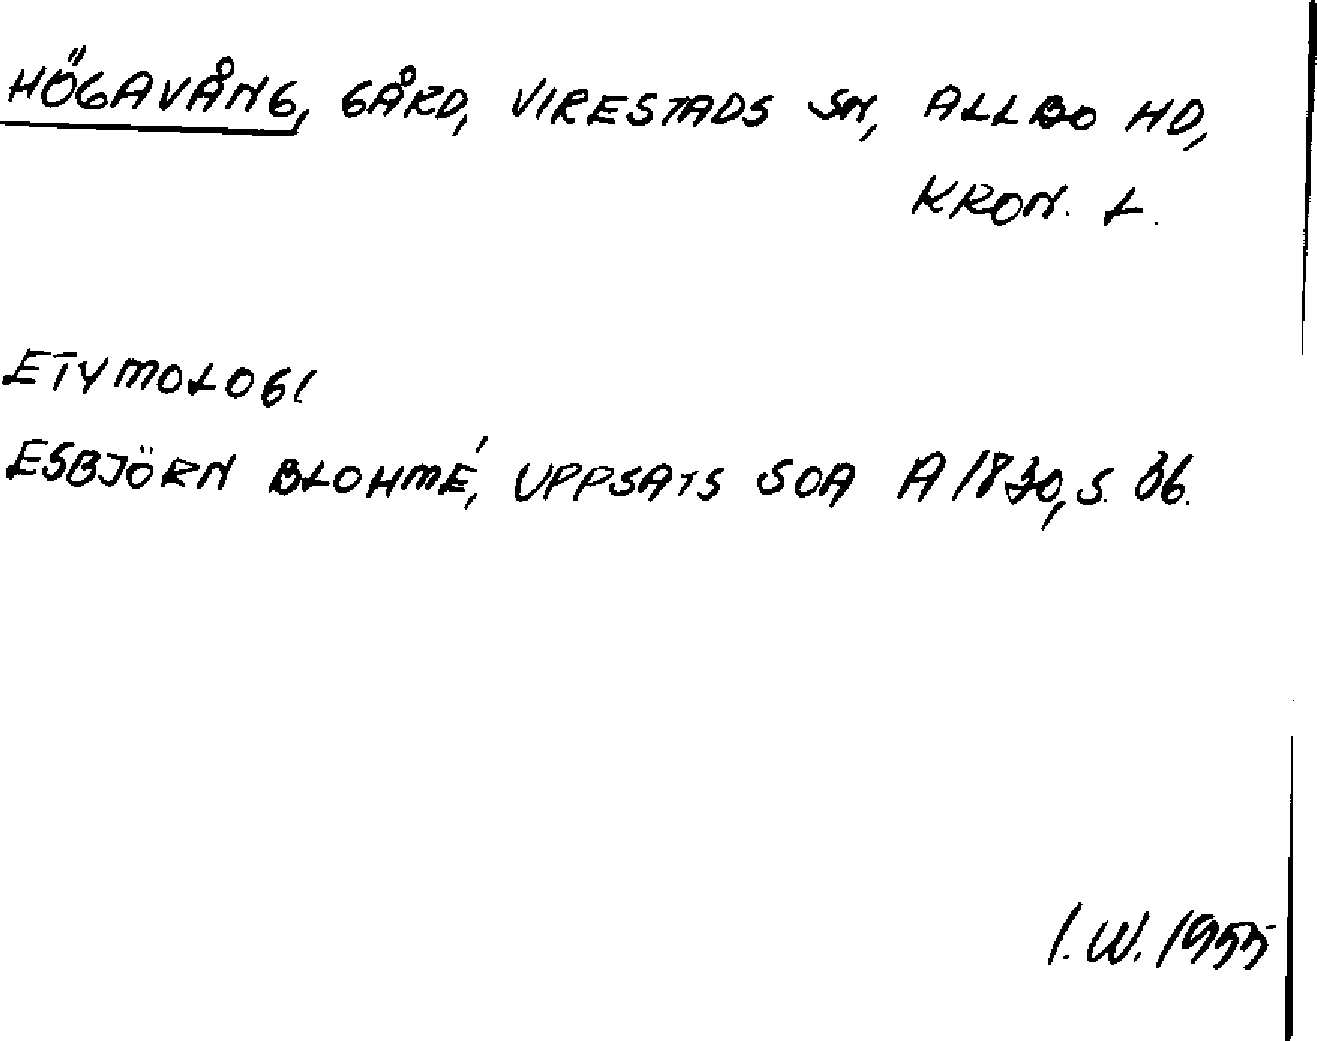 HÖGAVÅNG, GÅRD, VIRESTADS SN, ALLBO HD,
KRON. L.
ETYMOLOGI
ESBJÖRN BLOHMÉ, UPPSATS SOA A 1830, S. 36.
I. W. 1955